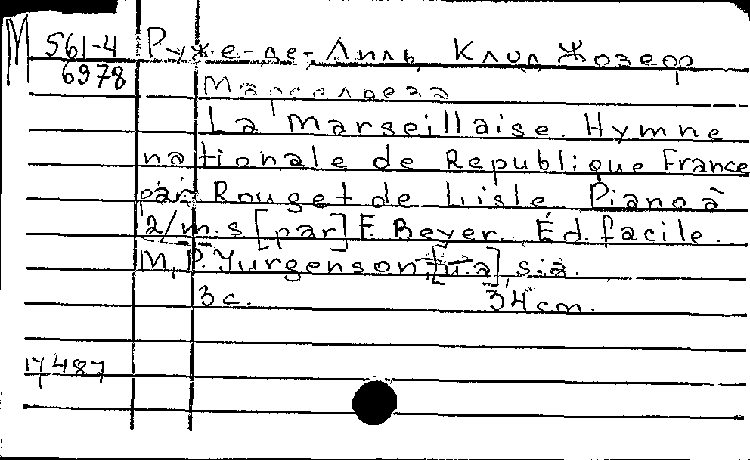 М 561-4 Руже-де-Лиль, Клод Жозеф
6978
Марсельеза
La Marseillaise. Hymne
nationale de Republique France
par Rouget de Lisle. Piano à
2/m.s [par] F. Beyer. Éd. facile.
M., P. Jurgenson, s.a.
3 с. 34 cm.
17487